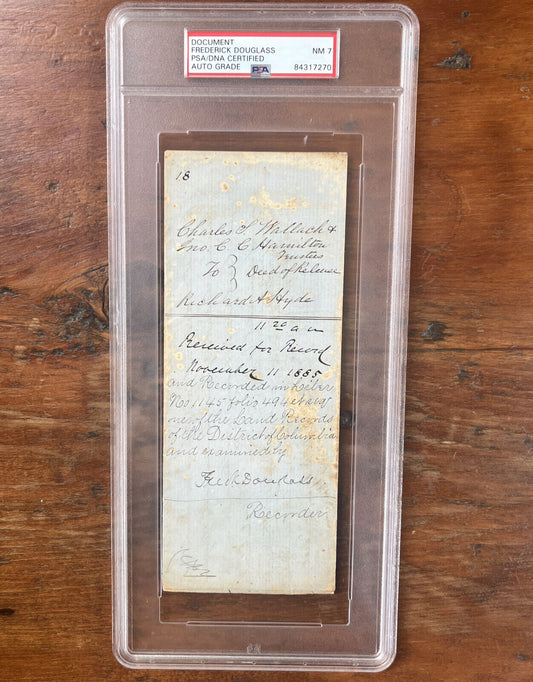 DOCUMENT
FREDERICK DOUGLASS NM 7
PSA/DNA CERTIFIED
AUTO GRADE PSA 84317270
18
Charles S. Wallach &
Jno. C. C. Hamilton
Trustees
To } Deed of Release
Richard A Hyde
11 20 a m
Received for Record
November 11 1885
and Recorded in Liber
No 1145 folio 494 et seq
one of the Land Records
of the District of Columbia
and examined by
Fredk Douglass
Recorder